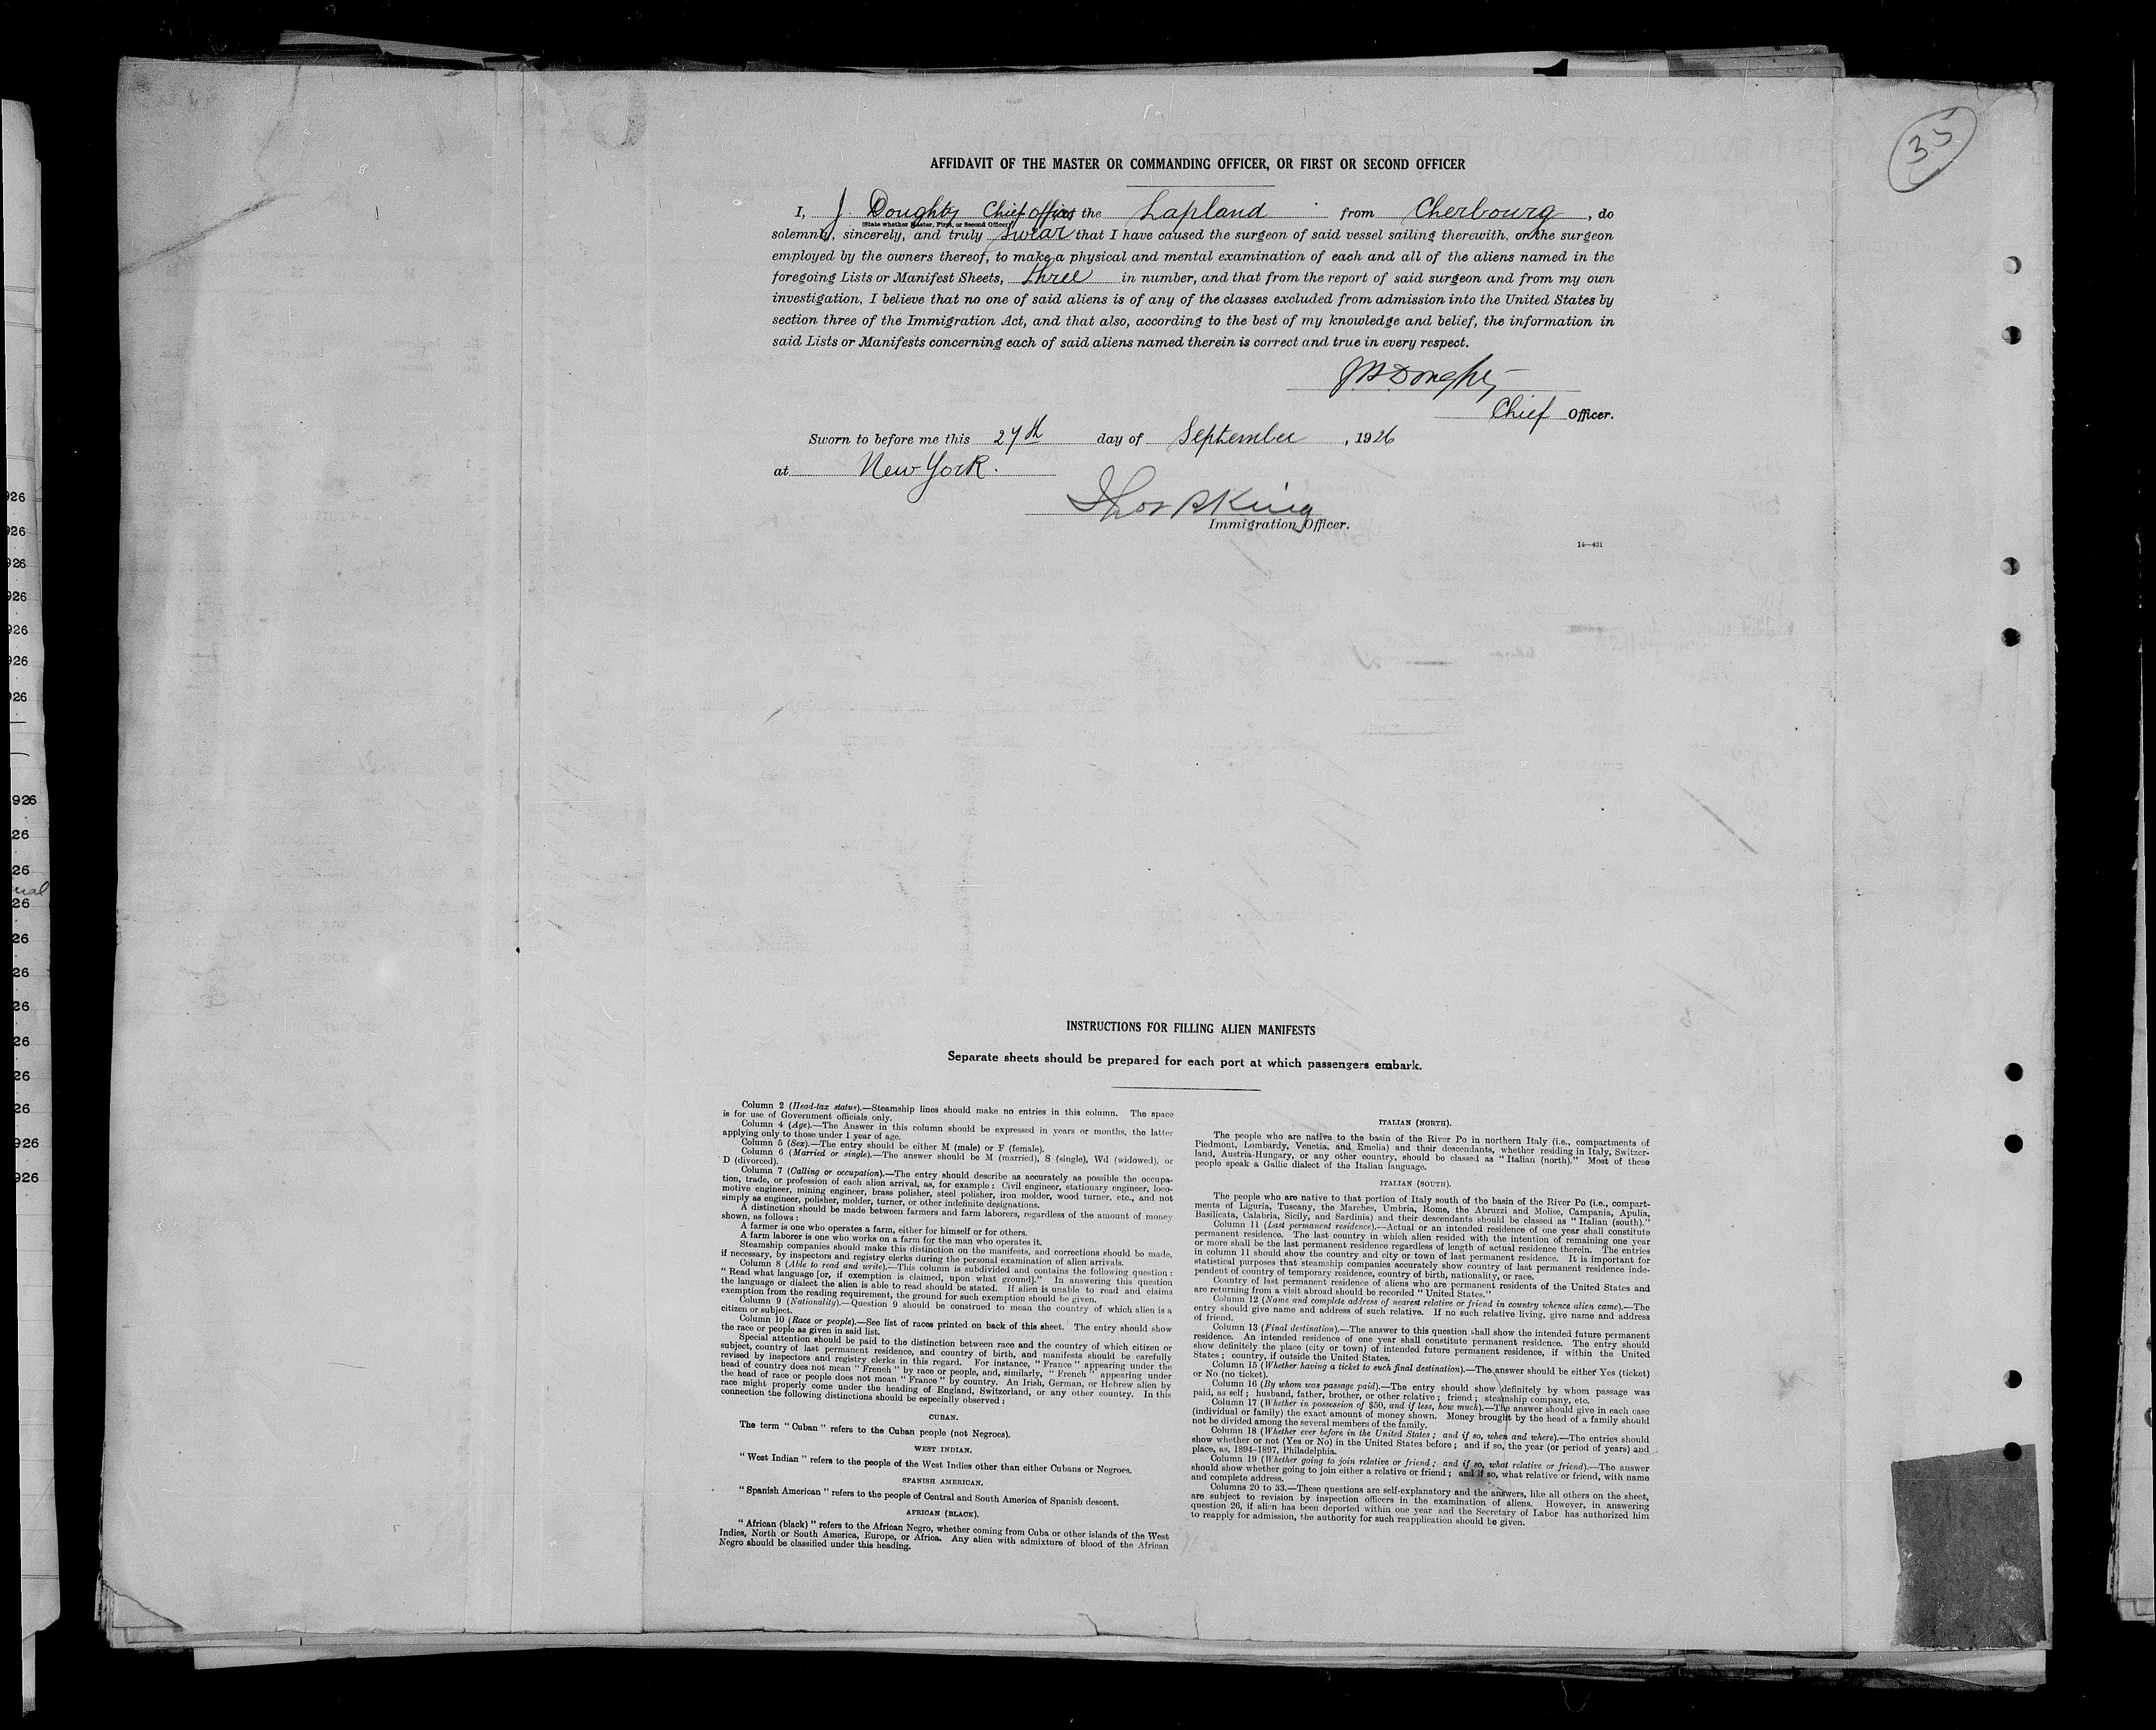 35
AFFIDAVIT OF THE MASTER OR COMMANDING OFFICER, OR FIRST OR SECOND OFFICER
I, J. Doughty Chief officer of the Lapland from Cherbourg, do
(State whether Master, First, or Second Officer)
solemnly, sincerely, and truly swear that I have caused the surgeon of said vessel sailing therewith, or the surgeon
employed by the owners thereof, to make a physical and mental examination of each and all of the aliens named in the
foregoing Lists or Manifest Sheets, three in number, and that from the report of said surgeon and from my own
investigation, I believe that no one of said aliens is of any of the classes excluded from admission into the United States by
section three of the Immigration Act, and that also, according to the best of my knowledge and belief, the information in
said Lists or Manifests concerning each of said aliens named therein is correct and true in every respect.
J. Doughty
Chief Officer.
Sworn to before me this 27th day of September, 1926
at New York.
Thos King
Immigration Officer.
14—431
INSTRUCTIONS FOR FILLING ALIEN MANIFESTS
Separate sheets should be prepared for each port at which passengers embark.
Column 2 (Head-tax status).—Steamship lines should make no entries in this column. The space
is for use of Government officials only.
Column 4 (Age).—The Answer in this column should be expressed in years or months, the latter
applying only to those under 1 year of age.
Column 5 (Sex).—The entry should be either M (male) or F (female).
Column 6 (Married or single).—The answer should be M (married), S (single), Wd (widowed), or
D (divorced).
Column 7 (Calling or occupation).—The entry should describe as accurately as possible the occupa-
tion, trade, or profession of each alien arrival, as, for example: Civil engineer, stationary engineer, loco-
motive engineer, mining engineer, brass polisher, steel polisher, iron molder, wood turner, etc., and not
simply as engineer, polisher, molder, turner, or other indefinite designations.
A distinction should be made between farmers and farm laborers, regardless of the amount of money
shown, as follows:
A farmer is one who operates a farm, either for himself or for others.
A farm laborer is one who works on a farm for the man who operates it.
Steamship companies should make this distinction on the manifests, and corrections should be made,
if necessary, by inspectors and registry clerks during the personal examination of alien arrivals.
Column 8 (Able to read and write).—This column is subdivided and contains the following question:
"Read what language [or, if exemption is claimed, upon what ground]." In answering this question
the language or dialect the alien is able to read should be stated. If alien is unable to read and claims
exemption from the reading requirement, the ground for such exemption should be given.
Column 9 (Nationality).—Question 9 should be construed to mean the country of which alien is a
citizen or subject.
Column 10 (Race or people).—See list of races printed on back of this sheet. The entry should show
the race or people as given in said list.
Special attention should be paid to the distinction between race and the country of which citizen or
subject, country of last permanent residence, and country of birth, and manifests should be carefully
revised by inspectors and registry clerks in this regard. For instance, "France" appearing under the
head of country does not mean "French" by race or people, and, similarly, "French" appearing under
the head of race or people does not mean "France" by country. An Irish, German, or Hebrew alien by
race might properly come under the heading of England, Switzerland, or any other country. In this
connection the following distinctions should be especially observed:
CUBAN.
The term "Cuban" refers to the Cuban people (not Negroes).
WEST INDIAN.
"West Indian" refers to the people of the West Indies other than either Cubans or Negroes.
SPANISH AMERICAN.
"Spanish American" refers to the people of Central and South America of Spanish descent.
AFRICAN (BLACK).
"African (black)" refers to the African Negro, whether coming from Cuba or other islands of the West
Indies, North or South America, Europe, or Africa. Any alien with admixture of blood of the African
Negro should be classified under this heading.
ITALIAN (NORTH).
The people who are native to the basin of the River Po in northern Italy (i.e., compartments of
Piedmont, Lombardy, Venetia, and Emelia) and their descendants, whether residing in Italy, Switzer-
land, Austria-Hungary, or any other country, should be classed as "Italian (north)." Most of these
people speak a Gallic dialect of the Italian language.
ITALIAN (SOUTH).
The people who are native to that portion of Italy south of the basin of the River Po (i.e., compart-
ments of Liguria, Tuscany, the Marches, Umbria, Rome, the Abruzzi and Molise, Campania, Apulia,
Basilicata, Calabria, Sicily, and Sardinia) and their descendants should be classed as "Italian (south)."
Column 11 (Last permanent residence).—Actual or an intended residence of one year shall constitute
permanent residence. The last country in which alien resided with the intention of remaining one year
or more shall be the last permanent residence regardless of length of actual residence therein. The entries
in column 11 should show the country and city or town of last permanent residence. It is important for
statistical purposes that steamship companies accurately show country of last permanent residence inde-
pendent of country of temporary residence, country of birth, nationality, or race.
Country of last permanent residence of aliens who are permanent residents of the United States and
are returning from a visit abroad should be recorded "United States."
Column 12 (Name and complete address of nearest relative or friend in country whence alien came).—The
entry should give name and address of such relative. If no such relative living, give name and address
of friend.
Column 13 (Final destination).—The answer to this question shall show the intended future permanent
residence. An intended residence of one year shall constitute permanent residence. The entry should
show definitely the place (city or town) of intended future permanent residence, if within the United
States; country, if outside the United States.
Column 15 (Whether having a ticket to such final destination).—The answer should be either Yes (ticket)
or No (no ticket).
Column 16 (By whom was passage paid).—The entry should show definitely by whom passage was
paid, as self; husband, father, brother, or other relative; friend; steamship company, etc.
Column 17 (Whether in possession of $50, and if less, how much).—The answer should give in each case
(individual or family) the exact amount of money shown. Money brought by the head of a family should
not be divided among the several members of the family.
Column 18 (Whether ever before in the United States; and if so, when and where).—The entries should
show whether or not (Yes or No) in the United States before; and if so, the year (or period of years) and
place, as, 1894-1897, Philadelphia.
Column 19 (Whether going to join relative or friend; and if so, what relative or friend).—The answer
should show whether going to join either a relative or friend; and if so, what relative or friend, with name
and complete address.
Columns 20 to 33.—These questions are self-explanatory and the answers, like all others on the sheet,
are subject to revision by inspection officers in the examination of aliens. However, in answering
question 26, if alien has been deported within one year and the Secretary of Labor has authorized him
to reapply for admission, the authority for such reapplication should be given.